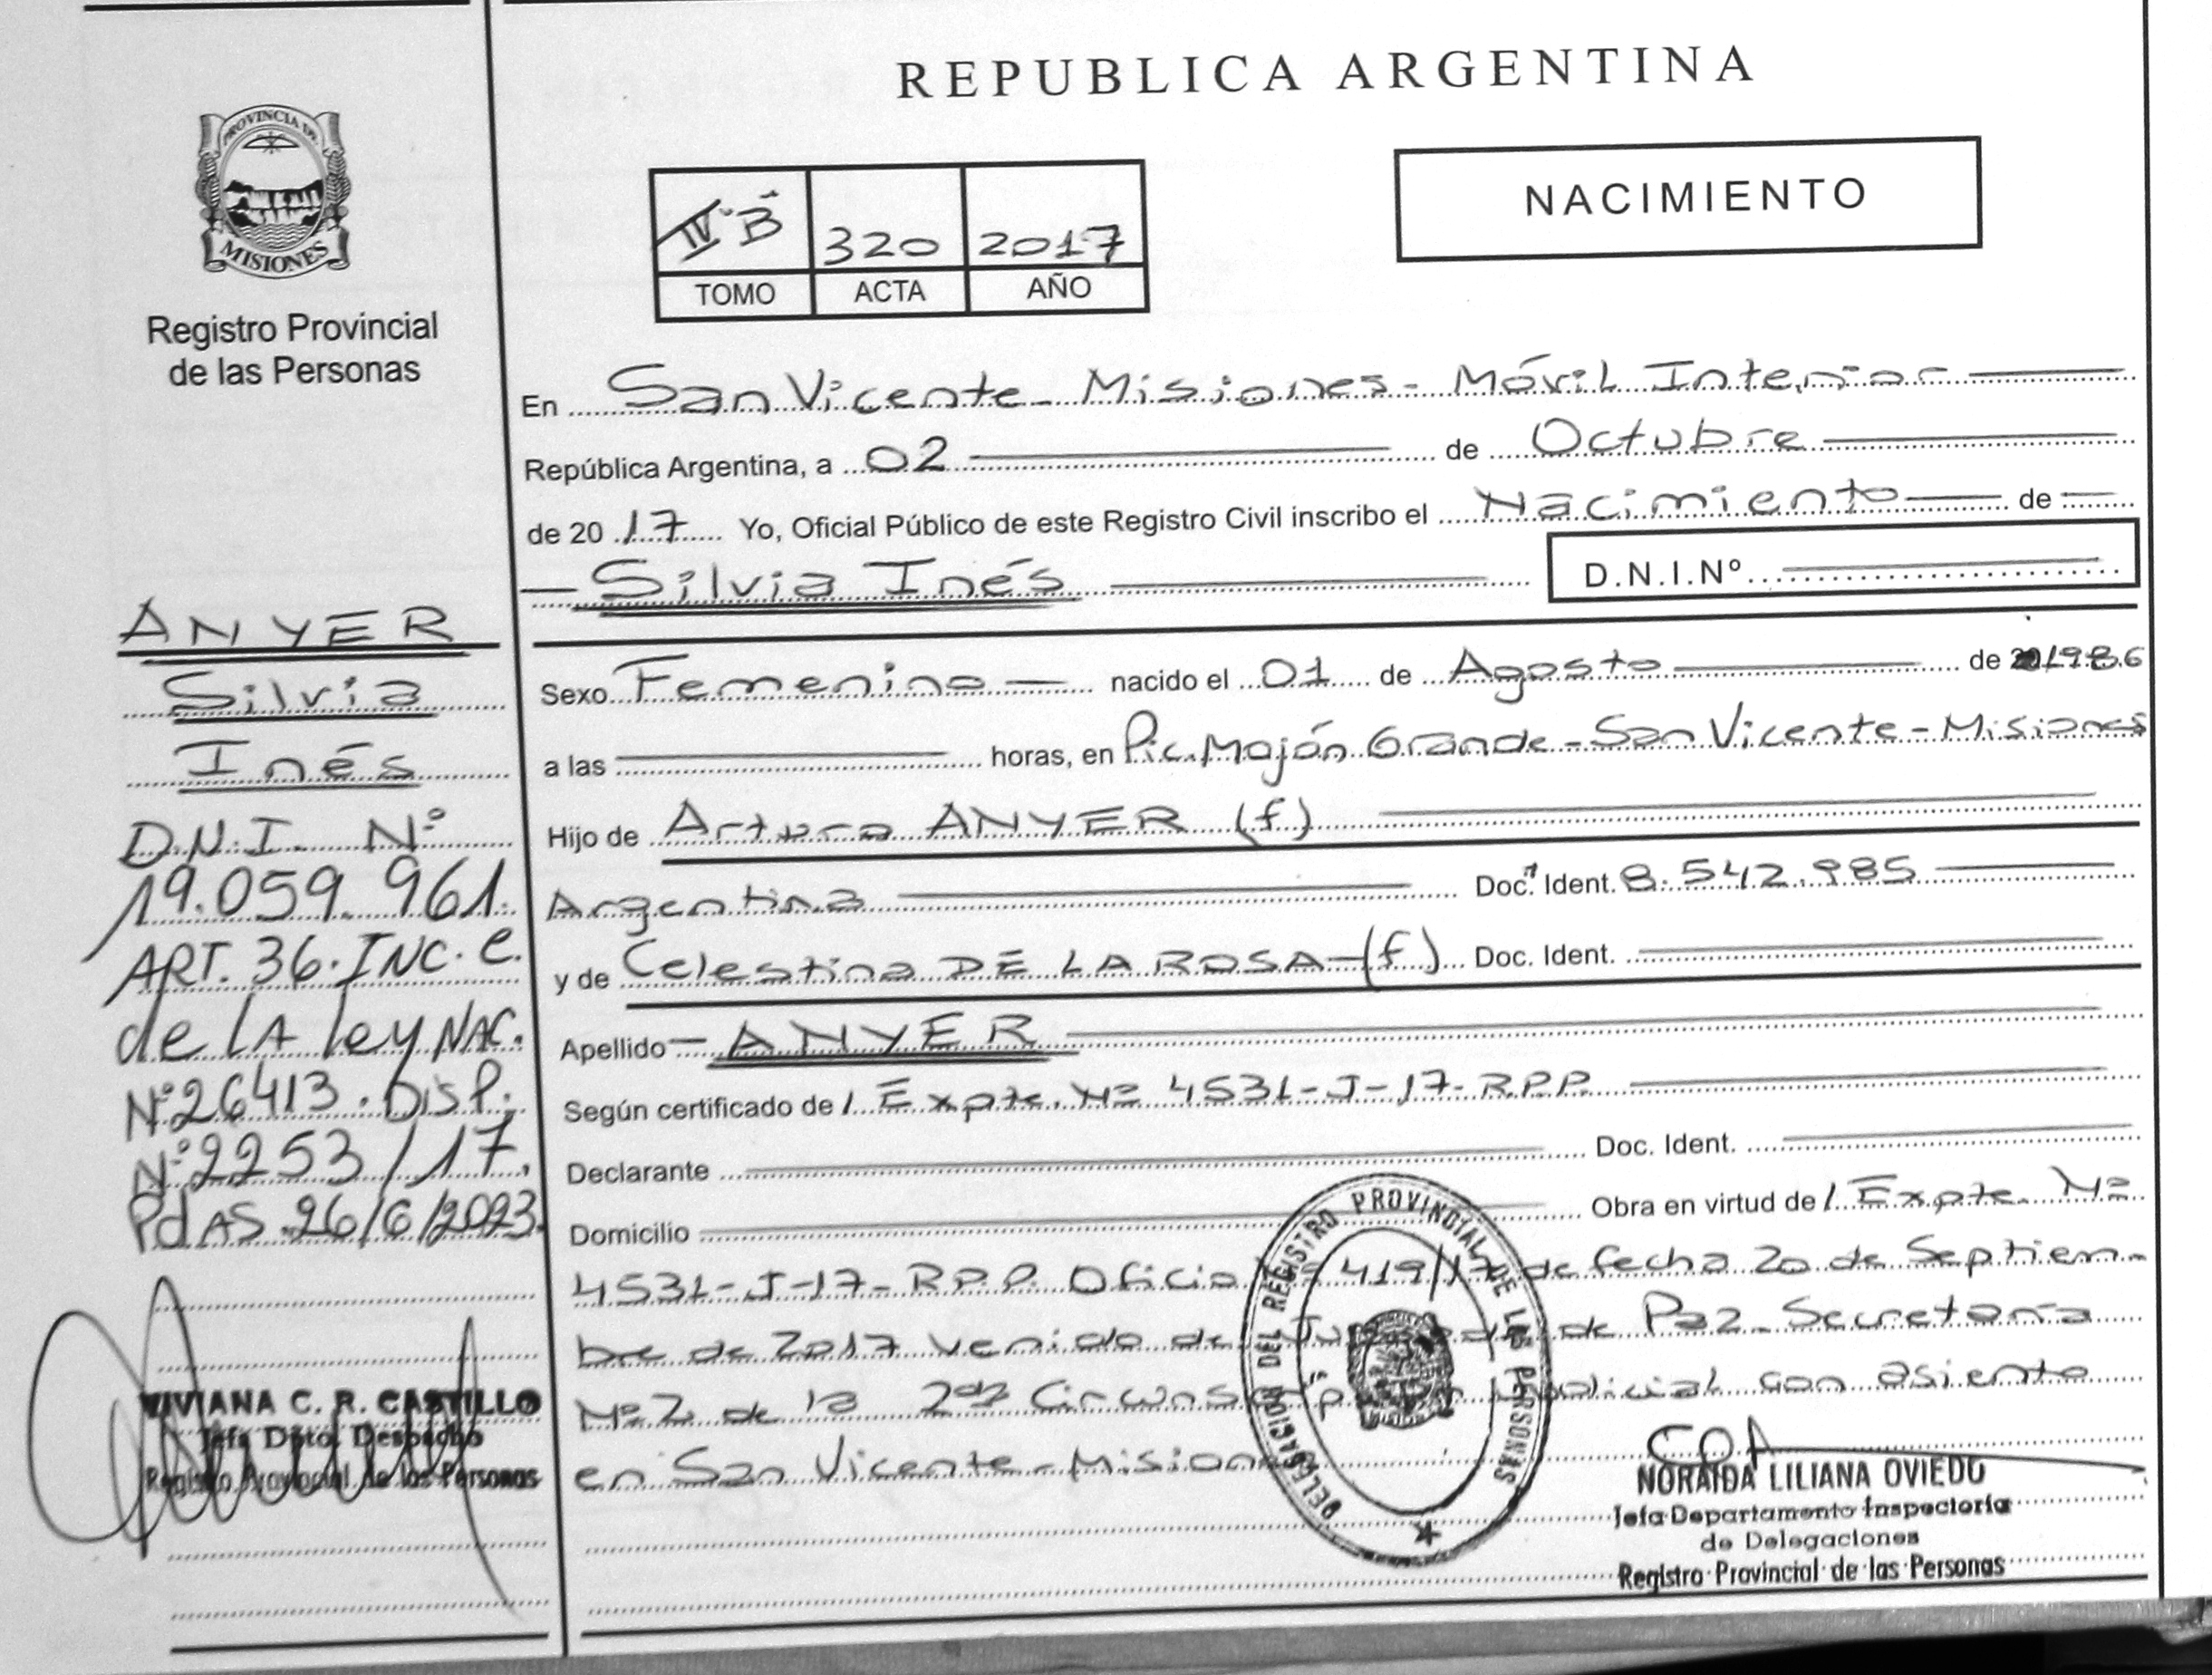 REPUBLICA ARGENTINA
PROVINCIA DE
MISIONES
Registro Provincial
de las Personas
NACIMIENTO
IV°B 320 2017
TOMO ACTA AÑO
En San Vicente - Misiones - Móvil Interior
República Argentina, a 02 de Octubre
de 2017 Yo, Oficial Público de este Registro Civil inscribo el Nacimiento de
Silvia Inés D.N.I.Nº
Sexo Femenino nacido el 01 de Agosto de 1986
a las horas, en Pic. Mojón Grande - San Vicente - Misiones
Hijo de Arturo ANYER (f)
Argentina Doc. Ident. 8.542.985
y de Celestina DE LA ROSA - (f) Doc. Ident.
Apellido ANYER
Según certificado de / Expte. Nº 4531-J-17-R.P.P.
Declarante Doc. Ident.
Domicilio Obra en virtud de / Expte. Nº
4531-J-17-R.P.P. Oficio Nº 419/17 de fecha 20 de Septiem-
bre de 2017 venido de Juzgado de Paz - Secretaría
Nº 2 de la 2da Circunscripción Judicial con asiento
en San Vicente - Misiones
ANYER
Silvia
Inés
D.N.I. Nº
19.059.961.
ART. 36. INC. c.
de LA ley NAC.
Nº 26413. DISP.
Nº 2253/17.
Pdas. 26/6/2023.
VIVIANA C. R. CASTILLO
Jefa Dpto. Despacho
Registro Provincial de las Personas
DELEGACION DEL REGISTRO PROVINCIAL DE LAS PERSONAS
NORAIDA LILIANA OVIEDO
Jefa Departamento Inspectoría
de Delegaciones
Registro Provincial de las Personas